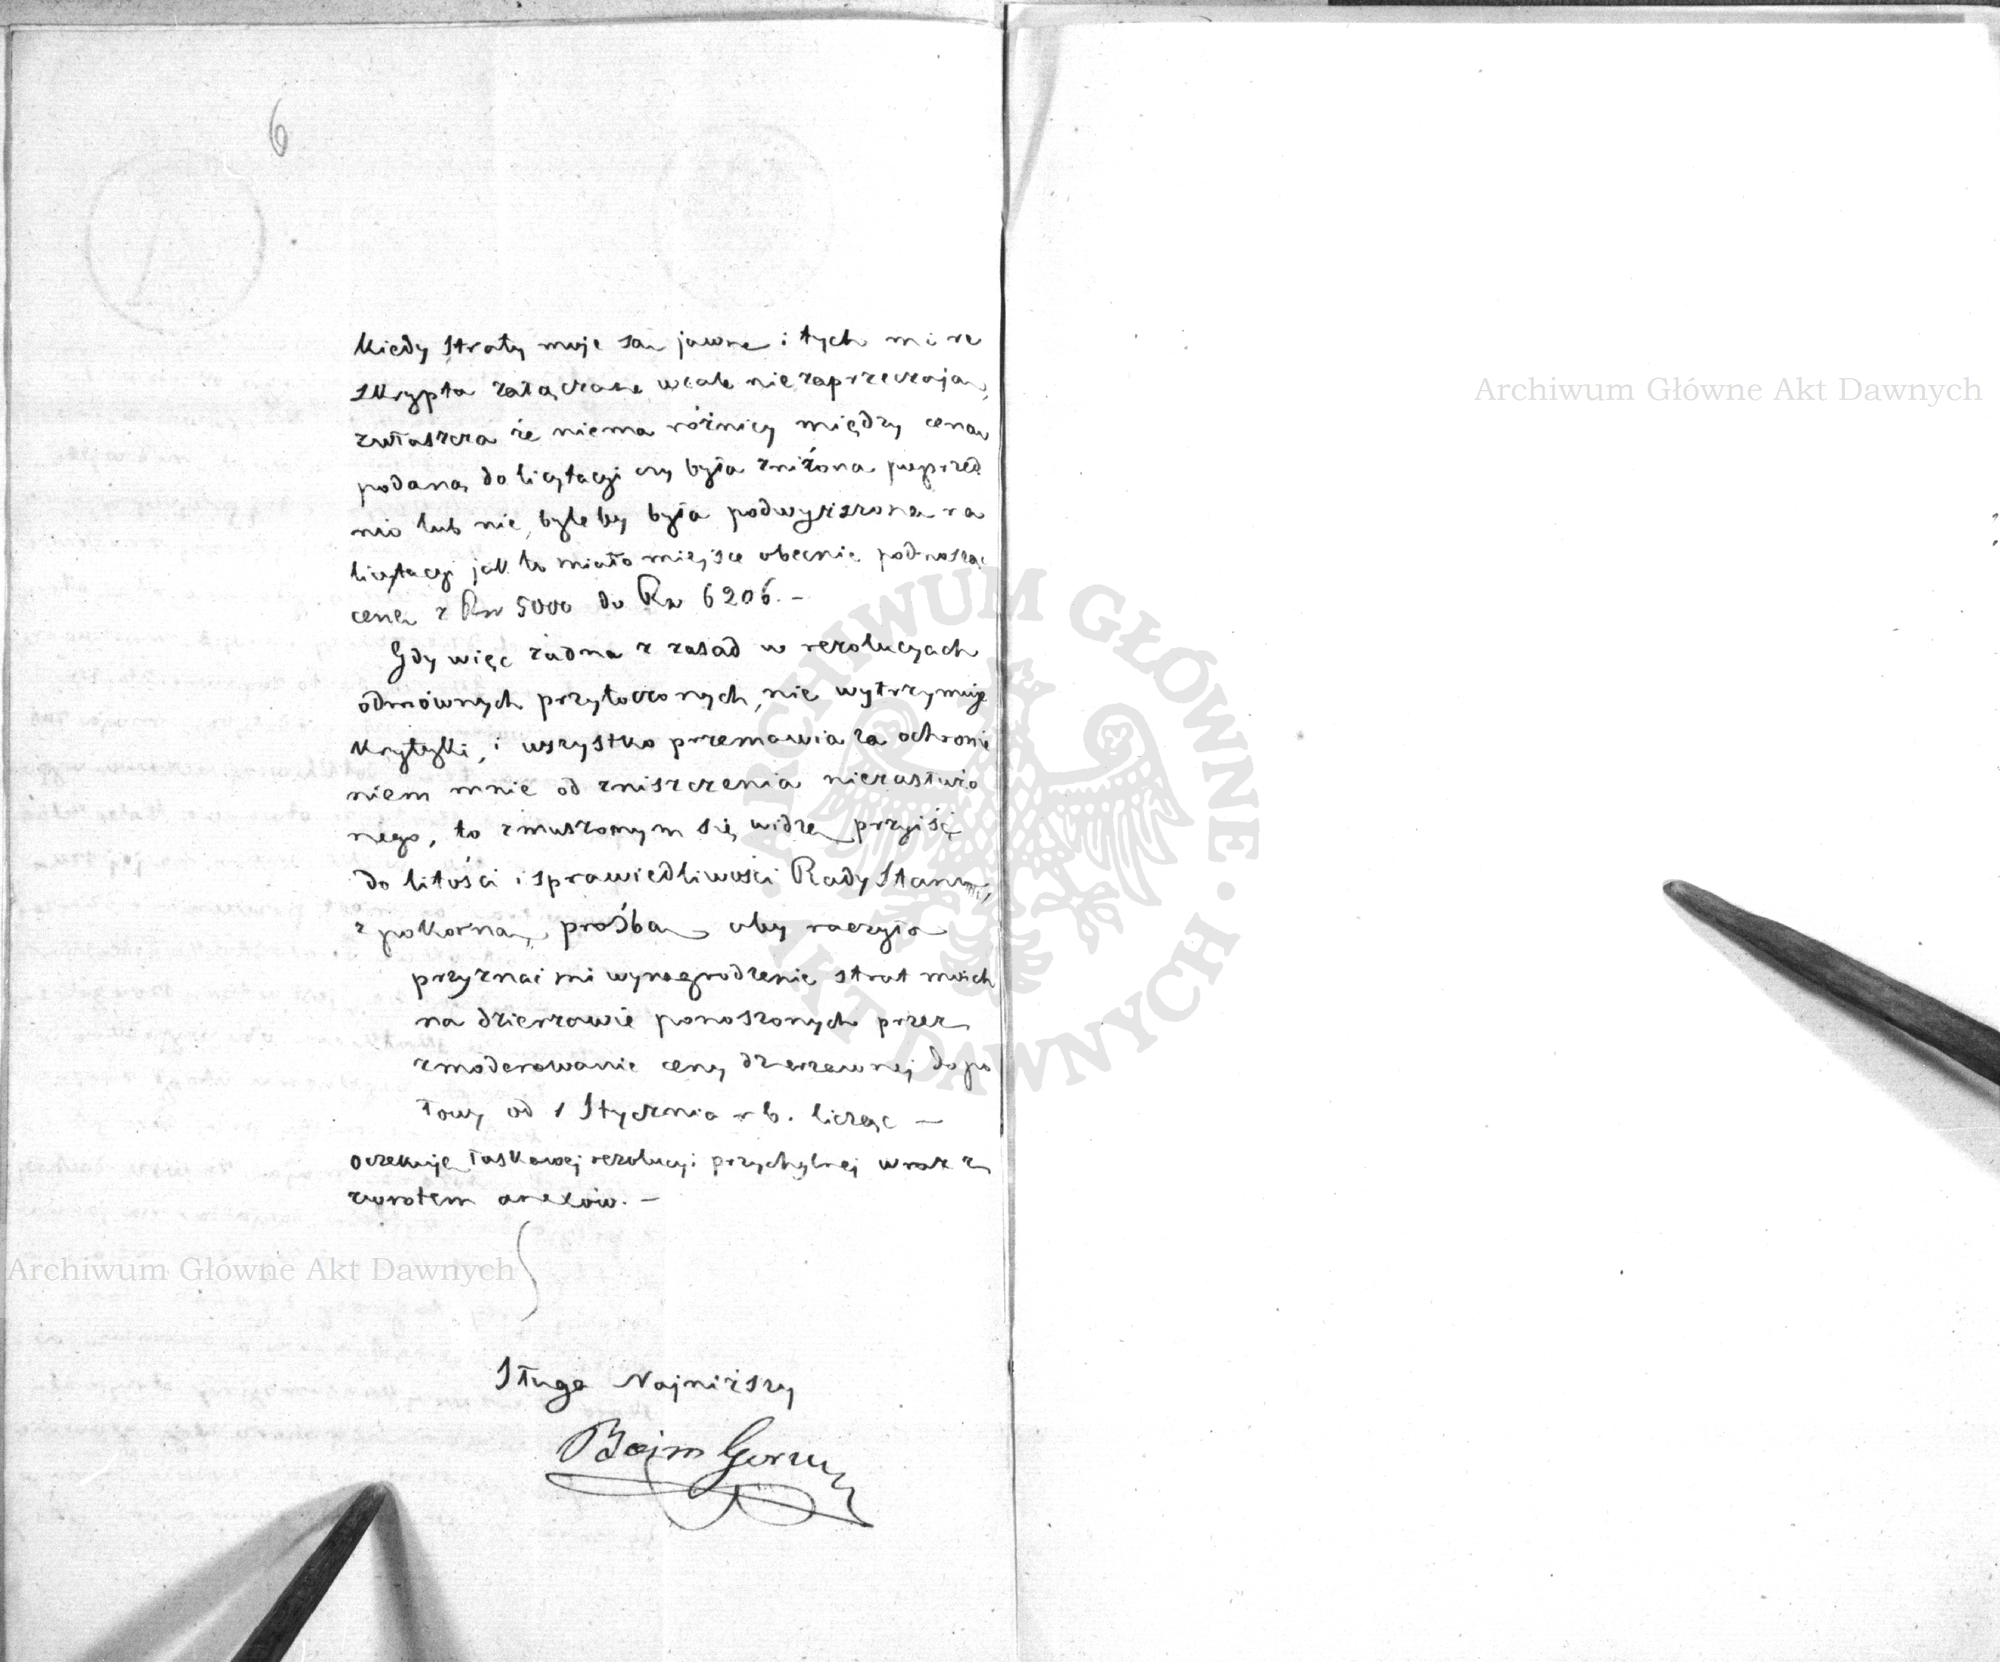 6
kiedy straty moje są jawne i tych mi re
skrypta załączane wcale nie zaprzeczają,
zwłaszcza że niema różnicy między ceną
podaną do licytacyi czy była zniżona poprzed
nio lub nie, byle by była podwyższona na
licytacyi jak to miało miejsce obecnie podnosząc
cenę z Rs 5000 do Rs 6206. —
Gdy więc żadna z zasad w rezolucyach
odmównych przytoczonych, nie wytrzymuje
krytyki, i wszystko przemawia za ochronie
niem mnie od zniszczenia niezasłużo
nego, to zmuszonym się widzę przyjść
do litości i sprawiedliwości Rady Stanu,
z pokorną prośbą aby raczyła
przyznać mi wynagrodzenie strat moich
na dzierżawie ponoszonych przez
zmoderowanie ceny dzierżawnej do po
łowy od 1 Stycznia rb. licząc —
oczekuję łaskawej rezolucyi przychylnej wraz z
zwrotem anexów. —
Sługa Najniższy
Archiwum Główne Akt Dawnych
Archiwum Główne Akt Dawnych
ARCHIWUM GŁÓWNE · AKT DAWNYCH ·